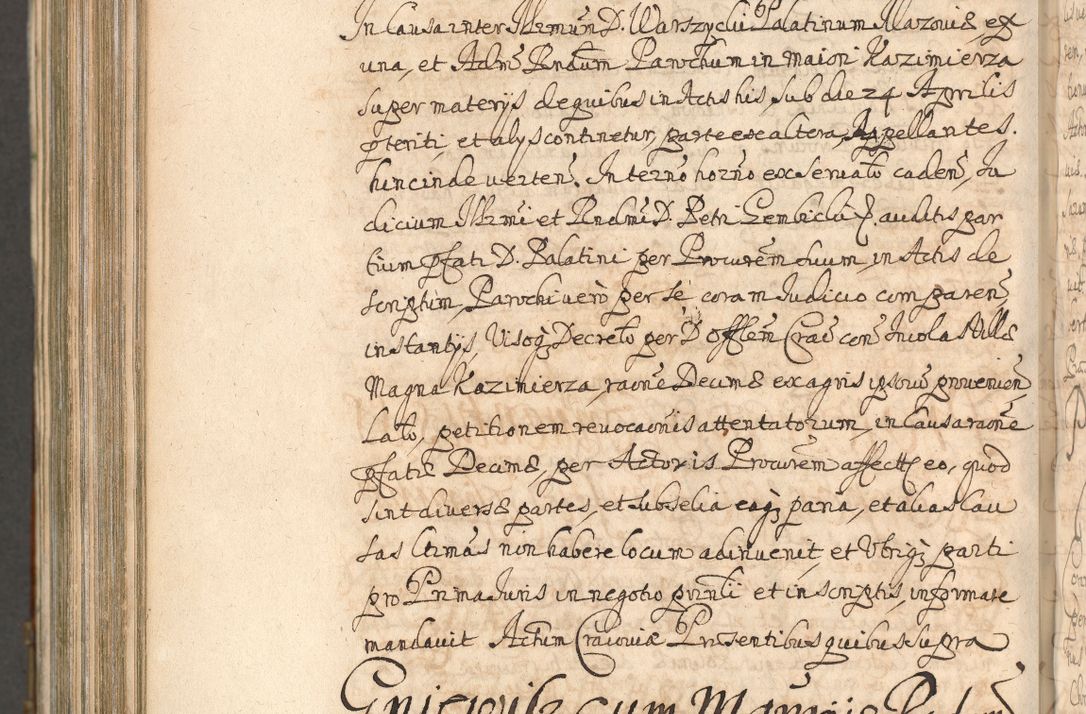 In Causa inter Illrmũm D. Warszycki Palatinum Mazoviæ, ex
una, et Admˢ Rndũm Parochum in maiori Kazimierza
super materijs de quibus in Actis his, sub die 24 Aprilis
pteriti, et alys continetur, parte ex altera, Appellantes.
hincinde verteñ. In termo horno ex seruato cadeñ, Ju
dicium Illrmi et Rndmi D. Petri Gembicki E. auditis par
tium pfati D. Palatini per Procurem suum, in Actis de
scriptum, Parochi verò per se coram Judicio comparen
instantijs, Visoq Decreto per D Offlem Crac coñ Incolas Villæ
Magna Kazimierza, raone Decimæ ex agris ipsorũ provenien
Lato, petitionem revocaonis attentatorum, in Causa raone
pfatæ Decimæ, per Actoris Procurem affectt, eo, quod
sint diversæ partes, et subselia eaq paria, et alias Cau
sas ltimas non habere locum adinvenit, et Utriq parti
pro Prima Juris in negotio prinlì et in scriptis, informare
mandavit Actum Cracoviæ Præsentibus quibus supra
cum